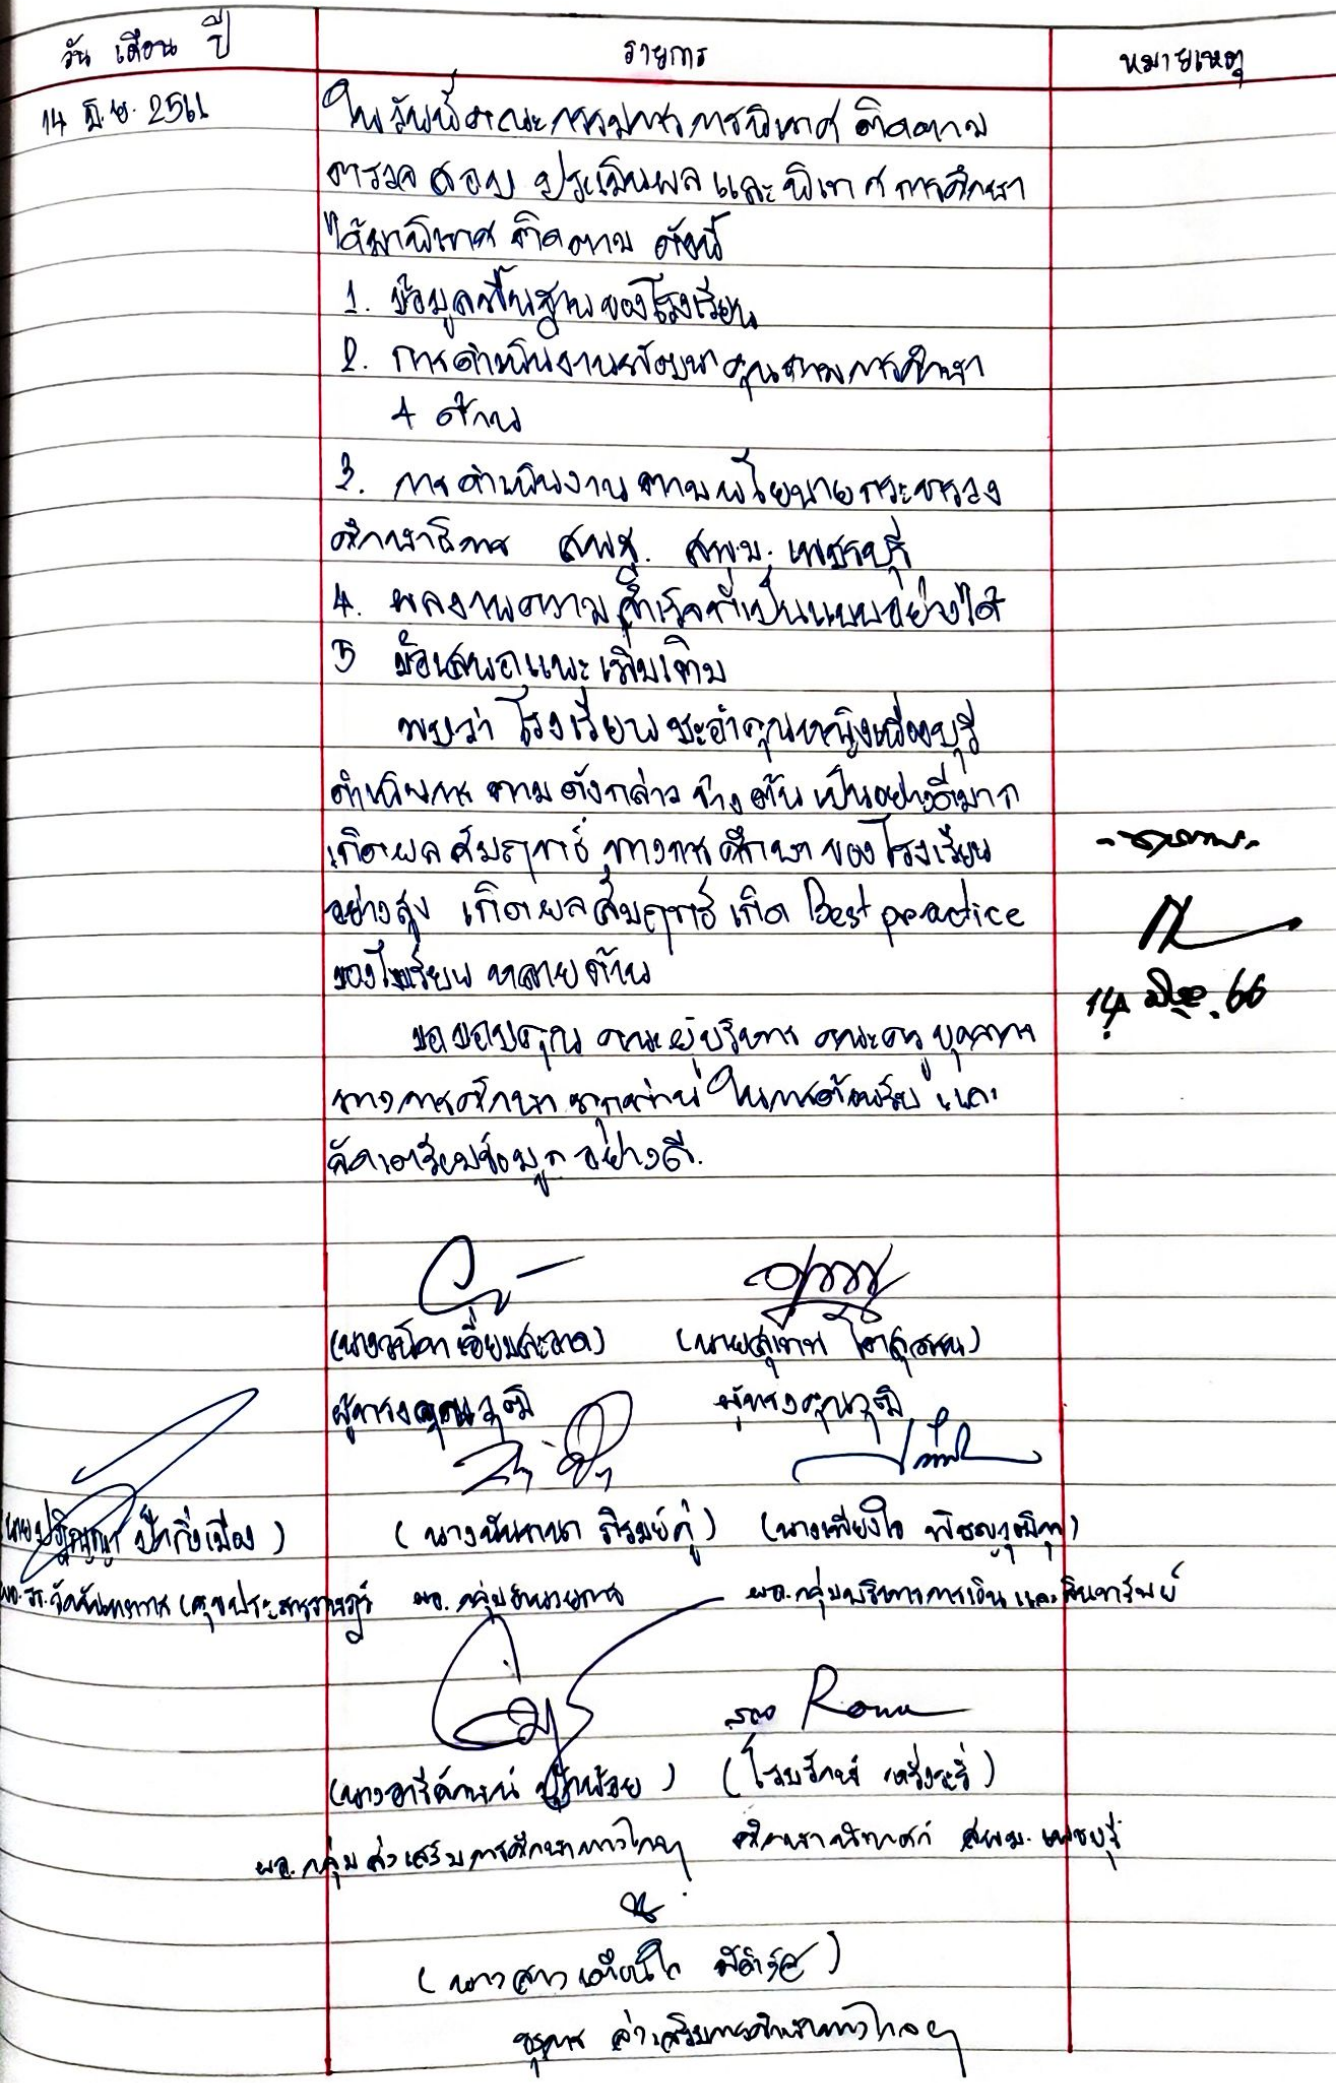 วัน เดือน ปี
รายการ
หมายเหตุ
14 มิ.ย. 2566
ในวันนี้คณะกรรมการการนิเทศ ติดตาม
ตรวจสอบ ประเมินผล และนิเทศการศึกษา
ได้มานิเทศ ติดตาม ดังนี้
1. ข้อมูลพื้นฐานของโรงเรียน
2. การดำเนินงานพัฒนาคุณภาพการศึกษา
4 ด้าน
3. การดำเนินงานตามนโยบายกระทรวง
ศึกษาธิการ สพฐ. สพม. เพชรบุรี
4. ผลงานความสำเร็จที่เป็นแบบอย่างได้
5 ข้อเสนอแนะเพิ่มเติม
พบว่า โรงเรียนชะอำคุณหญิงเนื่องบุรี
ดำเนินการ ตามดังกล่าวข้างต้น เป็นอย่างดีมาก
เกิดผลสัมฤทธิ์ ทางการศึกษาของโรงเรียน
อย่างสูง เกิดผลสัมฤทธิ์ เกิด Best practice
ของโรงเรียน หลายด้าน
14 มิย. 66
ขอขอบคุณ คณะผู้บริหาร คณะครู บุคลากร
ทางการศึกษา ทุกท่าน ในการต้อนรับ และ
จัดเตรียมข้อมูลอย่างดี.
(นางวนิดา เอี่ยมสะอาด) (นายสุเทพ
ผู้ทรงคุณวุฒิ ผู้ทรงคุณวุฒิ
(นายปฏิญญา ) (นางนันทนา ภิรมย์ภู่) (นางเพียงใจ
ผอ.รร.วัดจันทราวาส (ศุขประสารราษฎร์ ผอ.กลุ่มอำนวยการ ผอ.กลุ่มบริหารการเงินและสินทรัพย์
(นางอารีลักษณ์ น้อย) (โรมรักษ์ )
ผอ.กลุ่มส่งเสริมการศึกษาทางไกลฯ ศึกษานิเทศก์ สพม.เพชรบุรี
(นางสาวเตือนใจ )
ธุรการ ส่งเสริมการศึกษาทางไกลฯ